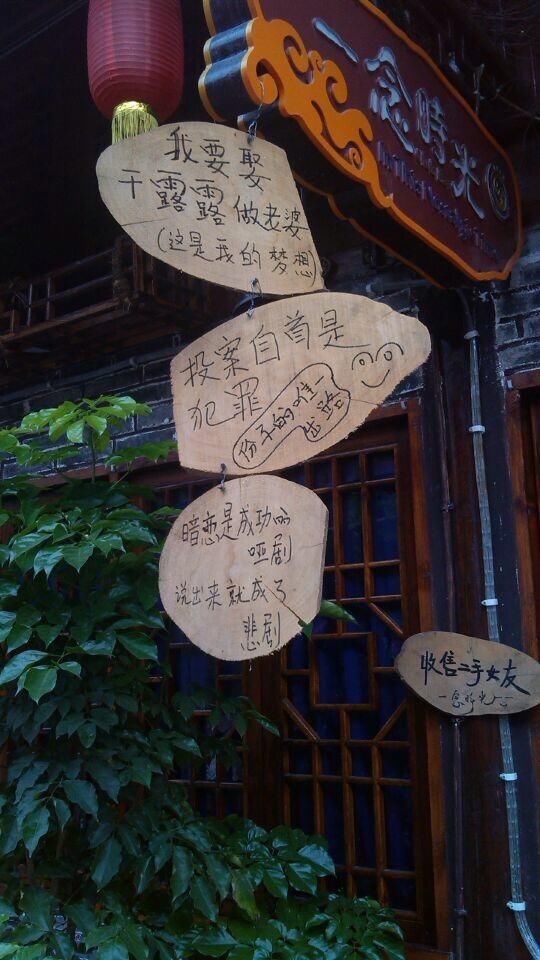 一念時光
我要娶
干露露做老婆
(这是我的梦想)
投案自首是
犯罪
份子的唯一
出路
暗恋是成功的
哑剧
说出来就成了
悲剧
收售二手女友